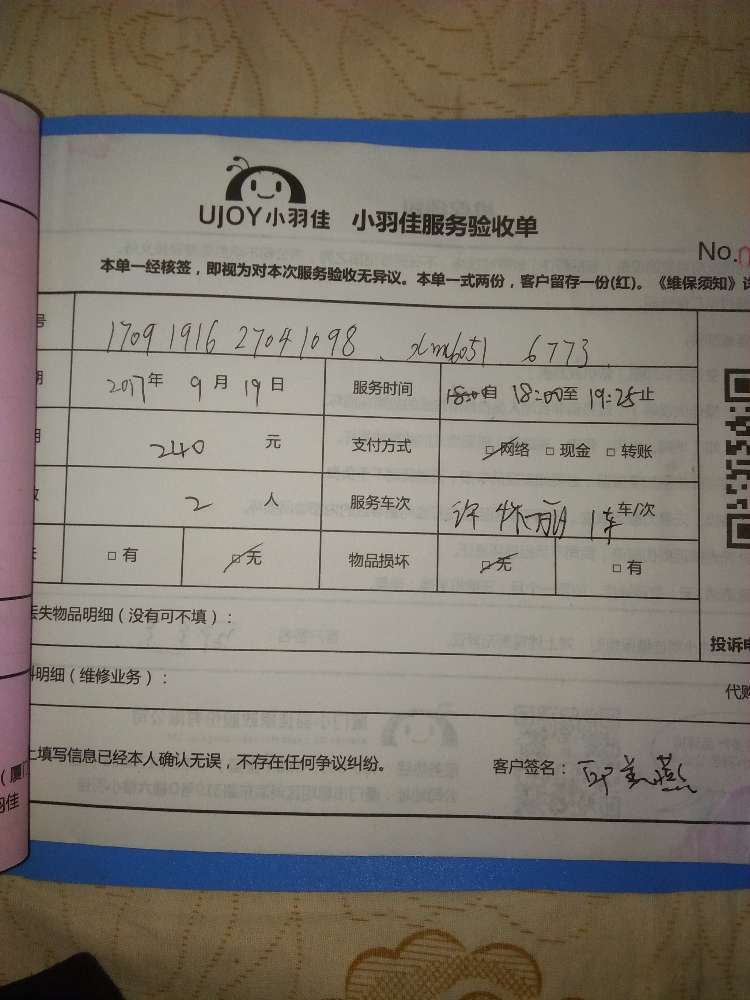 UJOY小羽佳 小羽佳服务验收单
No.0
本单一经核签，即视为对本次服务验收无异议。本单一式两份，客户留存一份(红)。《维保须知》详
号 17091916 27041098 xm6051 6773
期 2017年 9月 19日 服务时间 自 18:00至 19:25止
用 240 元 支付方式 □网络 □现金 □转账
数 2 人 服务车次 许 1车 车/次
□有 □无 物品损坏 □无 □有
丢失物品明细（没有可不填）：
投诉电
料明细（维修业务）：
代购
上填写信息已经本人确认无误，不存在任何争议纠纷。 客户签名： 邱美燕
（厦门
羽佳